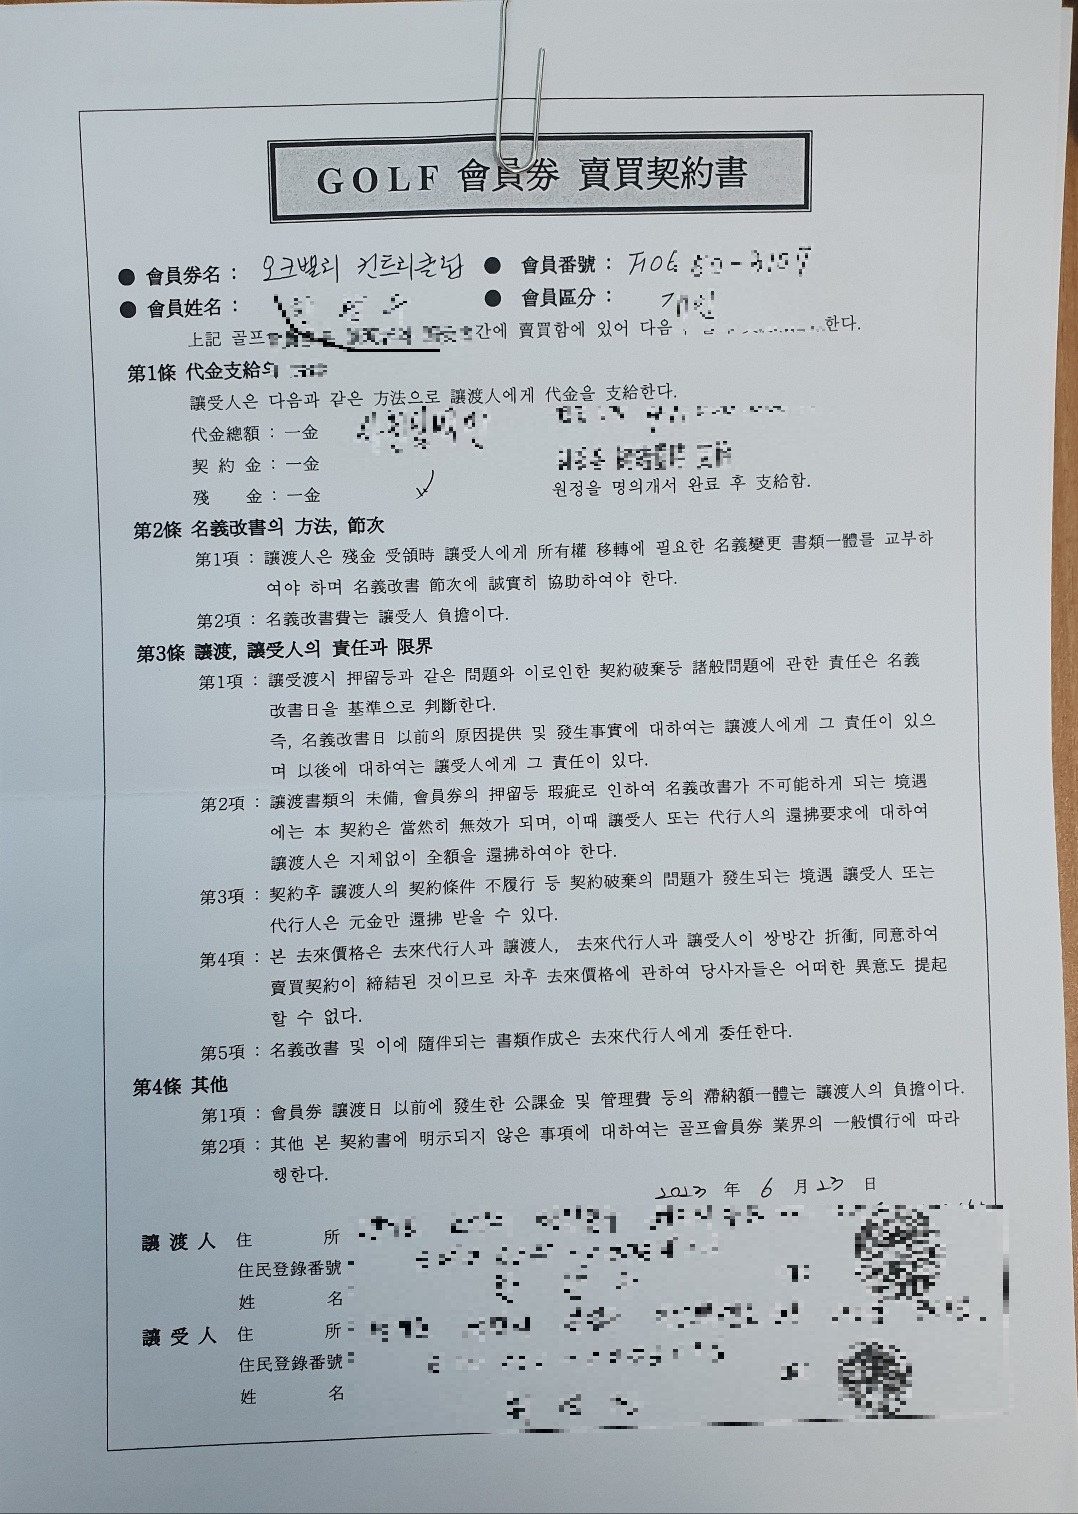 GOLF 會員券 賣買契約書
● 會員券名 : 오크밸리 컨트리클럽 ● 會員番號 :
● 會員姓名 : ● 會員區分 :
上記 골프 간에 賣買함에 있어 다음 한다.
第1條 代金支給의
讓受人은 다음과 같은 方法으로 讓渡人에게 代金을 支給한다.
代金總額 : 一金
契 約 金 : 一金
殘 金 : 一金 원정을 명의개서 완료 후 支給함.
第2條 名義改書의 方法, 節次
第1項 : 讓渡人은 殘金 受領時 讓受人에게 所有權 移轉에 필요한 名義變更 書類一體를 교부하
여야 하며 名義改書 節次에 誠實히 協助하여야 한다.
第2項 : 名義改書費는 讓受人 負擔이다.
第3條 讓渡, 讓受人의 責任과 限界
第1項 : 讓受渡시 押留등과 같은 問題와 이로인한 契約破棄등 諸般問題에 관한 責任은 名義
改書日을 基準으로 判斷한다.
즉, 名義改書日 以前의 原因提供 및 發生事實에 대하여는 讓渡人에게 그 責任이 있으
며 以後에 대하여는 讓受人에게 그 責任이 있다.
第2項 : 讓渡書類의 未備, 會員券의 押留등 瑕疵로 인하여 名義改書가 不可能하게 되는 境遇
에는 本 契約은 當然히 無效가 되며, 이때 讓受人 또는 代行人의 還拂要求에 대하여
讓渡人은 지체없이 全額을 還拂하여야 한다.
第3項 : 契約후 讓渡人의 契約條件 不履行 등 契約破棄의 問題가 發生되는 境遇 讓受人 또는
代行人은 元金만 還拂 받을 수 있다.
第4項 : 본 去來價格은 去來代行人과 讓渡人, 去來代行人과 讓受人이 쌍방간 折衝, 同意하여
賣買契約이 締結된 것이므로 차후 去來價格에 관하여 당사자들은 어떠한 異意도 提起
할 수 없다.
第5項 : 名義改書 및 이에 隨伴되는 書類作成은 去來代行人에게 委任한다.
第4條 其他
第1項 : 會員券 讓渡日 以前에 發生한 公課金 및 管理費 등의 滯納額一體는 讓渡人의 負擔이다.
第2項 : 其他 본 契約書에 明示되지 않은 事項에 대하여는 골프會員券 業界의 一般慣行에 따라
행한다.
2023 年 6 月 23 日
讓 渡 人 住 所
住民登錄番號
姓 名
讓 受 人 住 所
住民登錄番號
姓 名